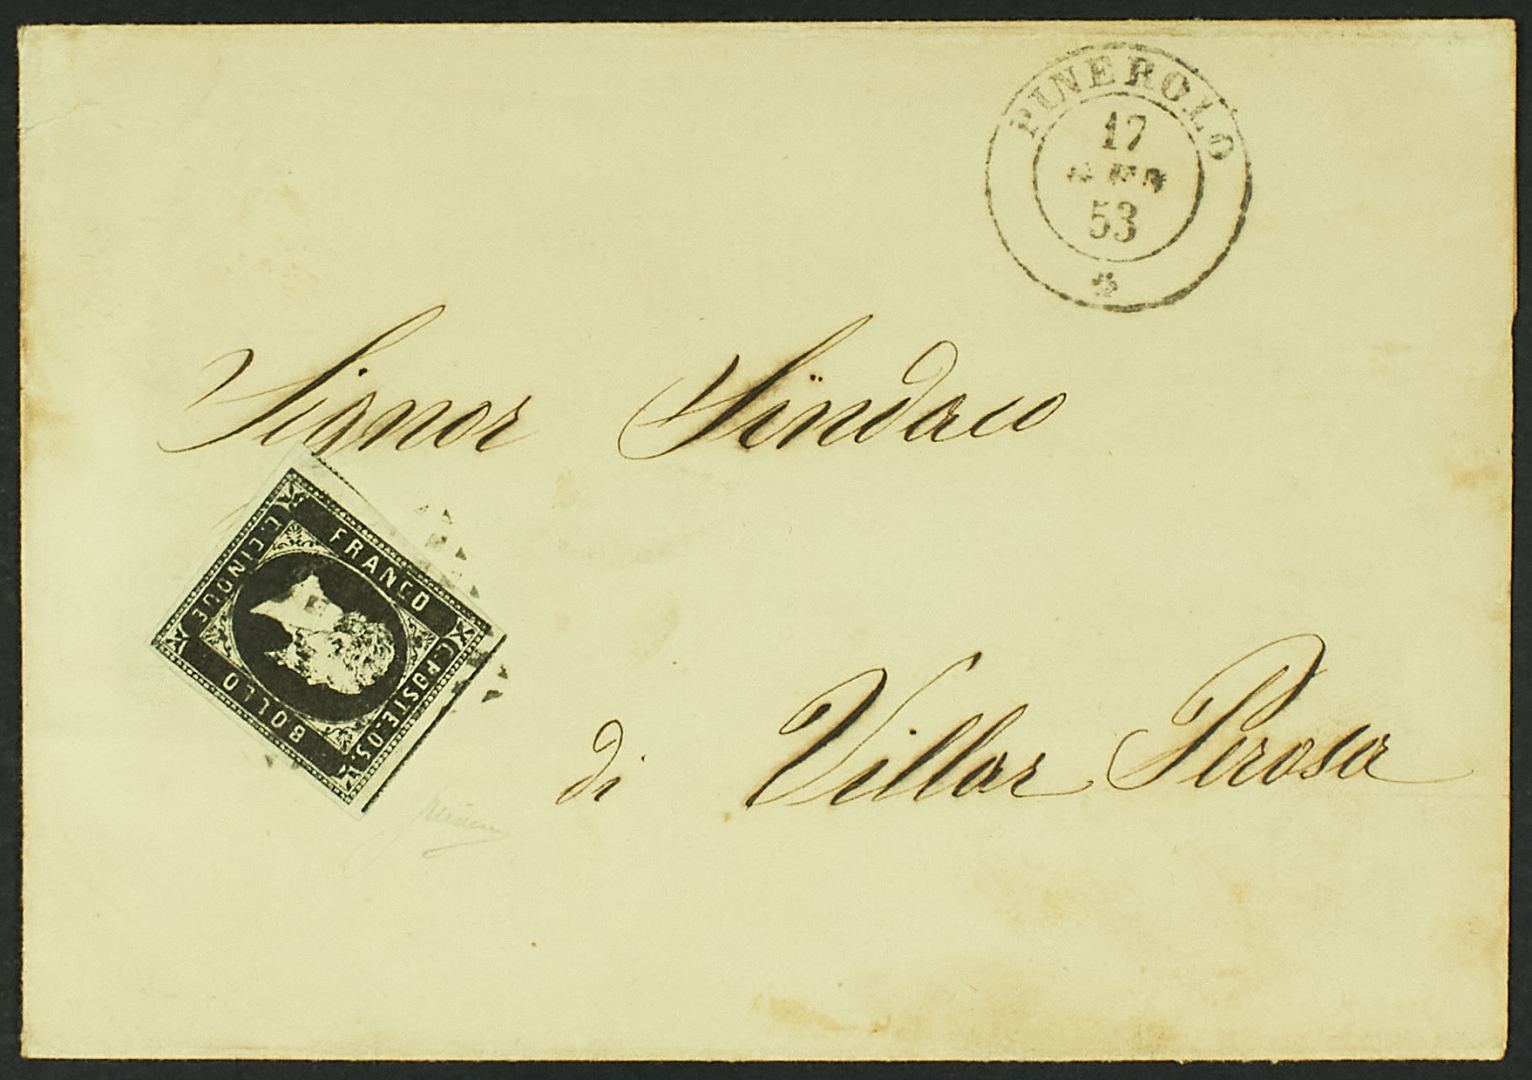 PINEROLO
17
53
Signor Sindaco
FRANCO
C. CINQUE
C. POSTE. 05.
BOLLO
di Villar Perosa